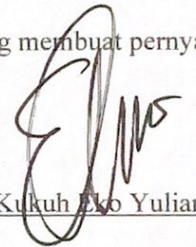 g membuat pernya
Kukuh Eko Yulian